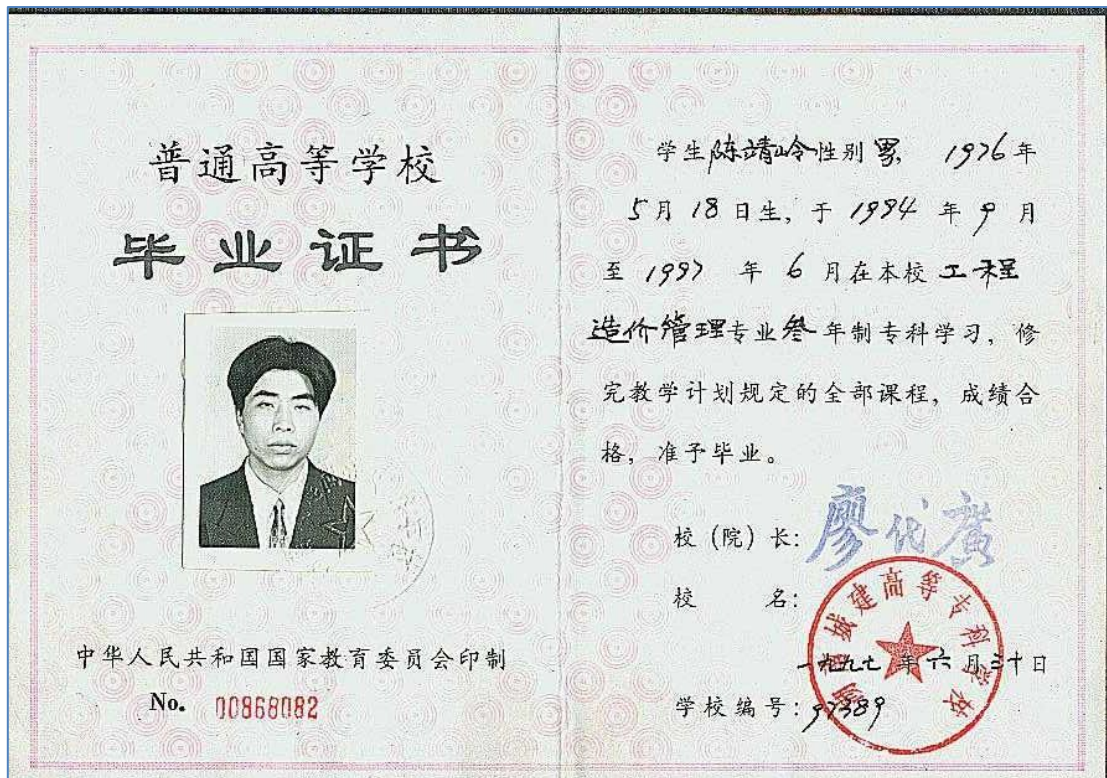 普通高等学校
毕业证书
中华人民共和国国家教育委员会印制
No. 00868082
学生陈靖岭性别男, 1976年
5月18日生, 于1994年9月
至1997年6月在本校工程
造价管理专业叁年制专科学习, 修
完教学计划规定的全部课程, 成绩合
格, 准予毕业。
校(院)长: 廖代广
校 名:
城建高等专科学校
一九九七年六月三十日
学校编号: 97389